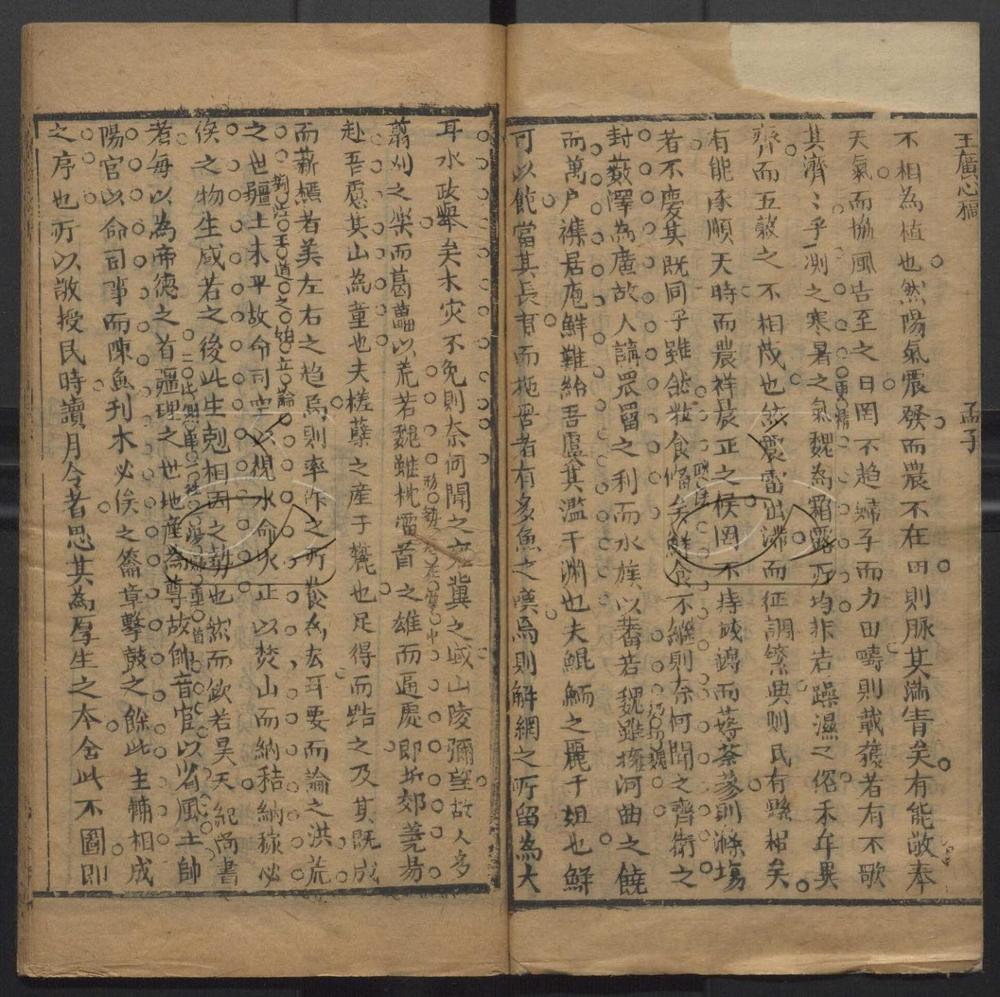 王廣心稿　孟子
不相為植也然陽氣震發而農不在田則脉其滿眚矣有能敬奉
天氣而協風告至之日罔不趋婦子而力田疇則載穫者有不歌
其濟〻乎測之寒暑之氣魏為霜露所均非若躁濕之俗禾年異
齊而五穀之不相茂也故震雷出滯而征調繁典則民有懸耜矣
有能承順天時而農祥晨正之候罔不持錢鎛而薅荼蓼則滌場
者不慶其既同乎雖然粒食脩矣鮮食不繼則奈何聞之齊衛之
封藪澤為廣故人講罛罶之利而水族以蕃若魏雖擁河曲之饒
而萬户襍居庖鮮難給吾慮其濫于淵也夫鯤鮞之麗于俎也鮮
可以飽當其長育而拖罟者有多魚之嘆焉則解網之所留為大
耳水政舉矣木灾不免則奈何聞之兖冀之域山陵彌望故人多
翦刈之樂而葛藟以荒若魏雖枕雷首之雄而逼處即於郊薨易
赴吾慮其山為童也夫槎蘖之産于麓也足得而跕之及其既成
而薪樵者美左右之趋焉則率作之所養為去耳要而論之洪荒
之世疆土未平故命司空以視水命火正以焚山而納秸納稼必
俟之物生咸若之後此生剋相因之勢也然而欽若昊天紀尚書
者每以為帝德之首疆理之世地産為尊故帥音官以省風土帥
陽官以命司事而陳魚刋木必俟之籥章擊鼓之餘此主輔相成
之序也所以敬授民時讀月令者思其為厚生之本舍此不圖則